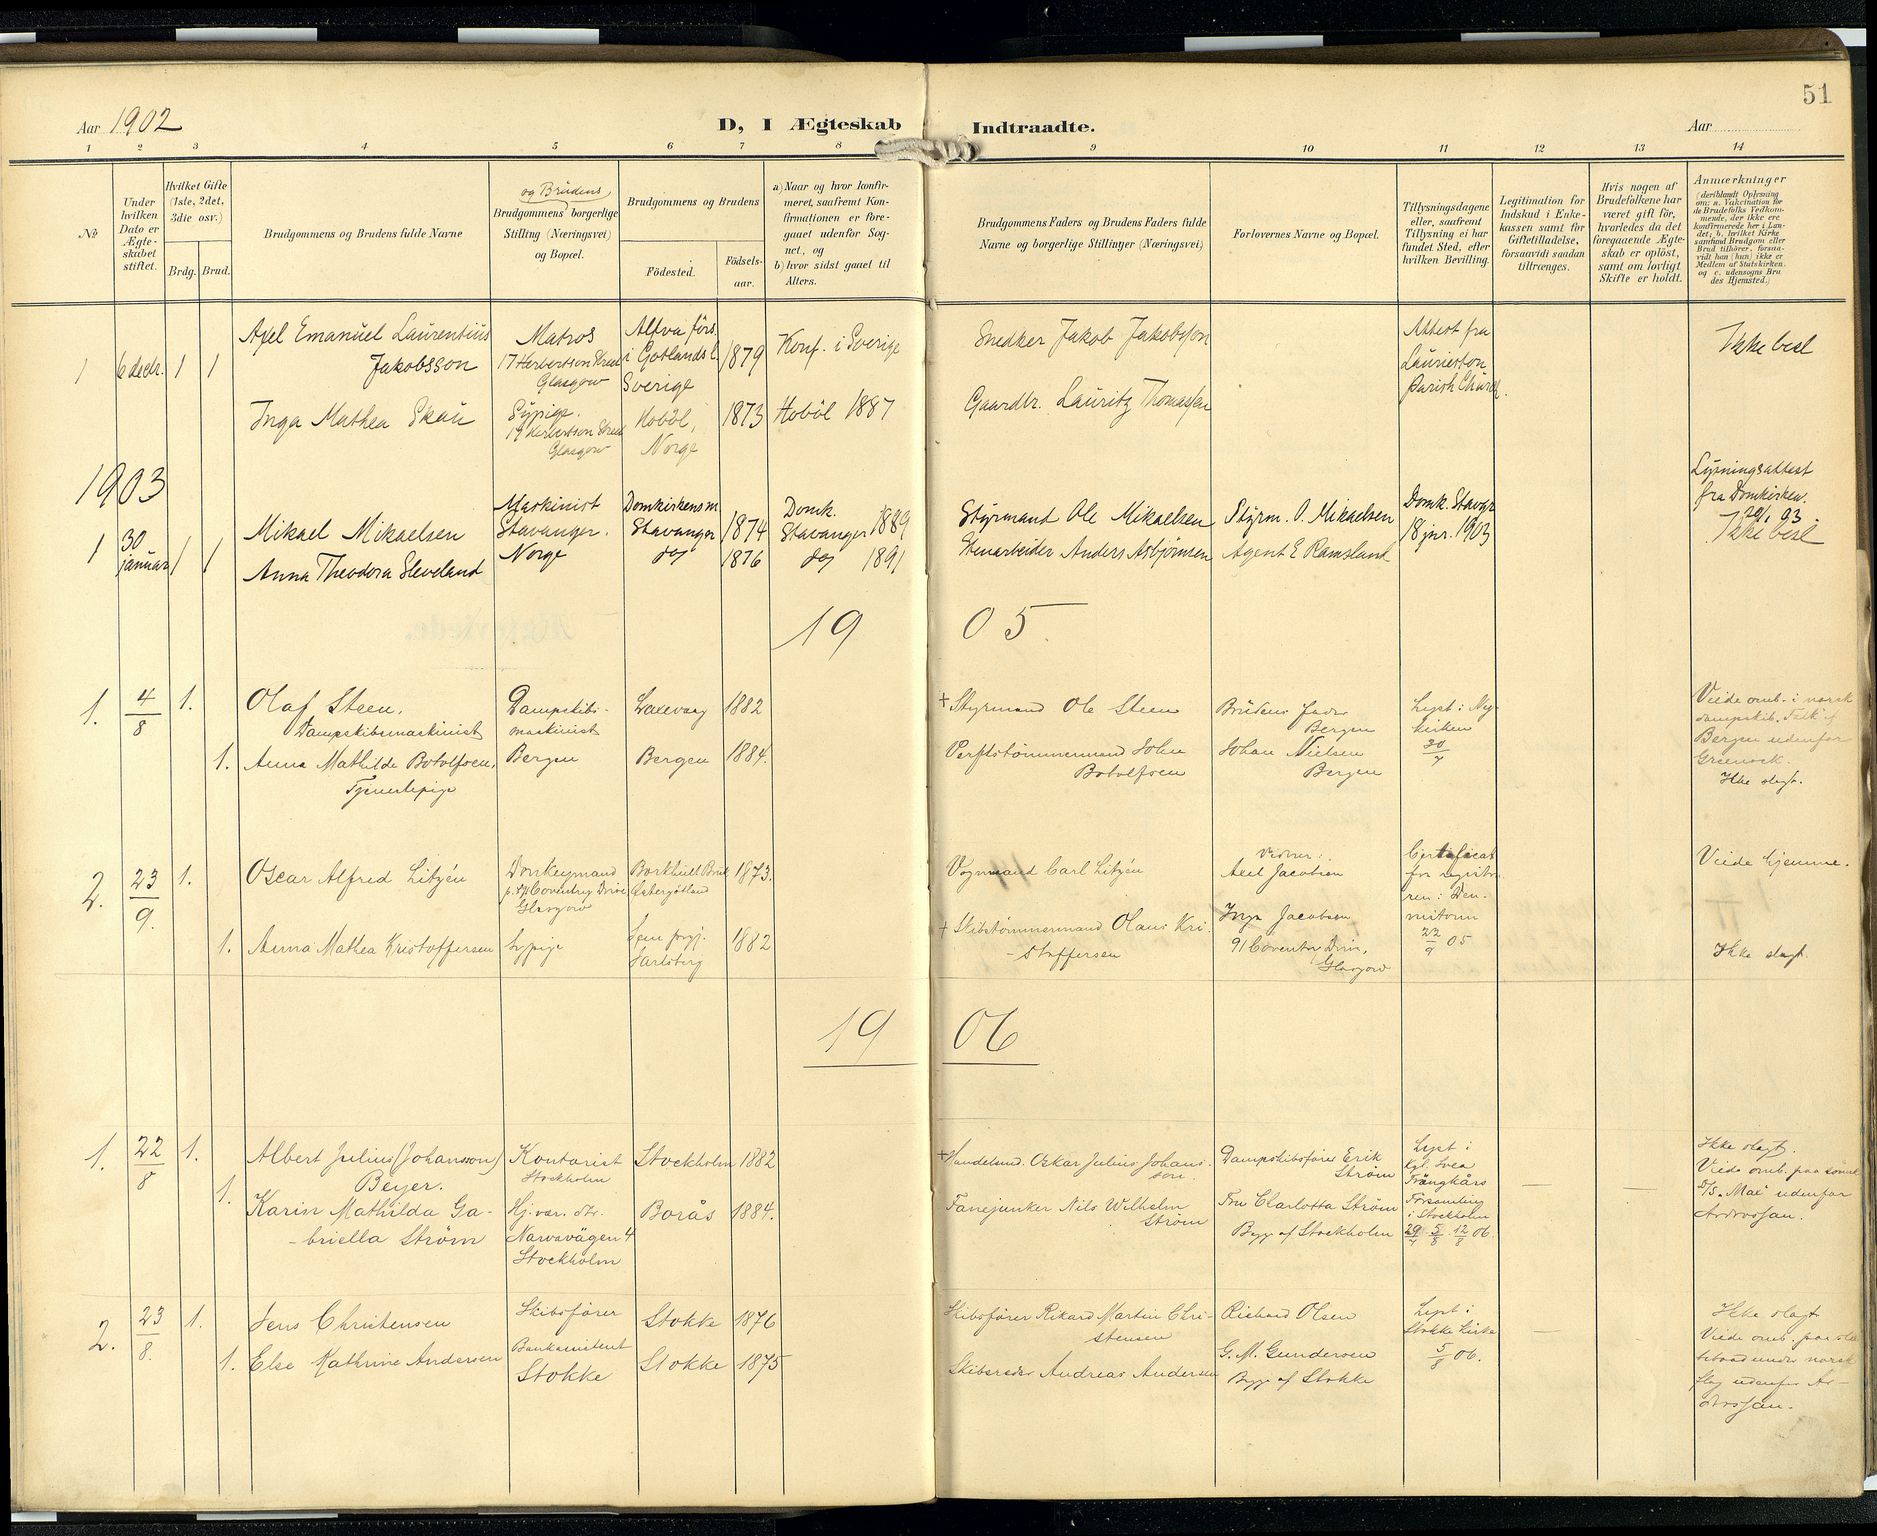 51
Aar 1902
D, I Ægteskab Indtraadte.
Aar
1 2 3 4 5 6 7 8 9 10 11 12 13 14
No
Under hvilken Dato er Ægteskabet stiftet.
Hvilket Gifte (1ste, 2det, 3die osv.)
Brdg. Brud.
Brudgommens og Brudens fulde Navne
og Brudens
Brudgommens borgerlige Stilling (Næringsvei) og Bopæl.
Brudgommens og Brudens
Födested.
Födselsaar.
a) Naar og hvor konfirmeret, saafremt Konfirmationen er foregaaet udenfor Sognet, og
b) hvor sidst gaaet til Alters.
Brudgommens Faders og Brudens Faders fulde Navne og borgerlige Stillinger (Næringsvei)
Forlovernes Navne og Bopæl.
Tillysningsdagene eller, saafremt Tillysning ei har fundet Sted, efter hvilken Bevilling.
Legitimation for Indskud i Enkekassen samt for Giftetilladelse, forsaavidt saadan tiltrænges.
Hvis nogen af Brudefolkene har været gift för, hvorledes da det foregaaende Ægteskab er oplöst, samt om lovligt Skifte er holdt.
Anmærkninger
(deriblandt Oplysning om: a. Vakcination for de Brudefolks Vedkommende, der ikke ere konfirmerede her i Landet; b. hvilket Kirkesamfund Brudgom eller Brud tilhörer, forsaavidt han (hun) ikke er Medlem af Statskirken og c. udensogns Brudes Hjemsted.)
1 6 decbr. 1 1
Axel Emanuel Laurentius
Jakobsson
Matros
17 Herbertson Street
Glasgow
Alfva förs.
i Gotlands l.
Sverige
1879
Konf. i Sverige
Snedker Jakob Jakobsson
Attest fra
Laurieston
Parish Church.
Ikke besl
Inga Mathea Skau
Sypige.
17 Herbertson Street
Glasgow
Hobøl,
Norge
1873
Hobøl 1887
Gaardbr. Lauritz Thomassen
1903
1 30 januar 1 1
Mikael Mikaelsen
Maskinist
Stavanger.
Norge
Domkirkens m
Stavanger
1874
Domk.
Stavanger 1889
Styrmand Ole Mikaelsen
Styrm. O. Mikaelsen
Domk. Stavgr
18 jnr. 1903
Lysningsattest
fra Domkirken.
20/1 03
Ikke besl
Anna Theodora Sleveland
do
1876
do 1891
Stenarbeider Anders Asbjørnsen
Agent E Ramsland
1905
1. 4/8 1.
Olaf Steen.
Dampskibsmaskinist
Dampskibs-
maskinist
Laxevaag
1882
+ Styrmand Ole Steen
Brudens Fader
Bergen
Lyst i Ny-
kirken
30/7
Viede omb. i norsk
dampskib "Falk" af
Bergen udenfor
Greenock.
Ikke slegt.
1.
Anna Mathilde Botolfsen,
Tjenestepige
Bergen
Bergen
1884.
Verftstømmermand John
Botolfsen
Johan Nielsen
Bergen
2. 23/9. 1.
Oscar Alfred Litzén
Donkeymand
Coventry Drive
Glasgow
Borkhult Bruk
Østergötland
1873.
Vognmand Carl Litzén
Vidner:
Axel Jacobsen
Certificat
fra registra-
ren i Den-
nistoun
22/9 05
Viede hjemme.
1.
Anna Mathea Kristoffersen
Sypige
Sem prgj.
Jarlsberg
1882
+ Skibstømmermand Olaus Kri-
-stoffersen
Inga Jacobsen
91 Coventry Drive,
Glasgow
Ikke slegt.
1906
1. 22/8 1.
Albert Julius (Johansson)
Beyer.
Kontorist
Stockholm
Stockholm
1882
+ Handelsmd. Oskar Julius Johans-
son.
Dampskibsfører Erik
Strøm
Lyst i
Kgl. Svea
Trängkårs
Församling
i Stockholm
29/7 5/8 12/8 06.
Ikke slegt.
Viede omb. paa svensk
D/S. "Mai" udenfor
Ardrossan.
1.
Karin Mathilda Ga-
-briella Strøm
Narvavägen 4
Stockholm
Borås
1884.
Fanejunker Nils Wilhelm
Strøm
Fru Charlotta Strøm
Begge af Stockholm
2. 23/8. 1.
Jens Christensen
Skibsfører
Stokke
1876
Skibsfører Rikard Martin Chri-
stensen
Richard Olsen
Lyst i
Stokke Kirke
5/8 06.
Ikke slegt
Viede omb. paa
under norsk
flag udenfor Ar-
drossan.
1.
Else Kathrine Andersen
Bankassistent
Stokke
Stokke
1875
Skibsreder Andreas Andersen
G. M. Gundersen
Begge af Stokke